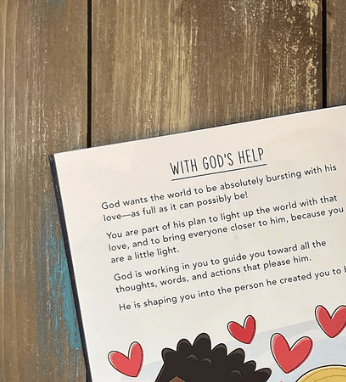 WITH GOD'S HELP
God wants the world to be absolutely bursting with his
love—as full as it can possibly be!
You are part of his plan to light up the world with that
love, and to bring everyone closer to him, because you
are a little light.
God is working in you to guide you toward all the
thoughts, words, and actions that please him.
He is shaping you into the person he created you to